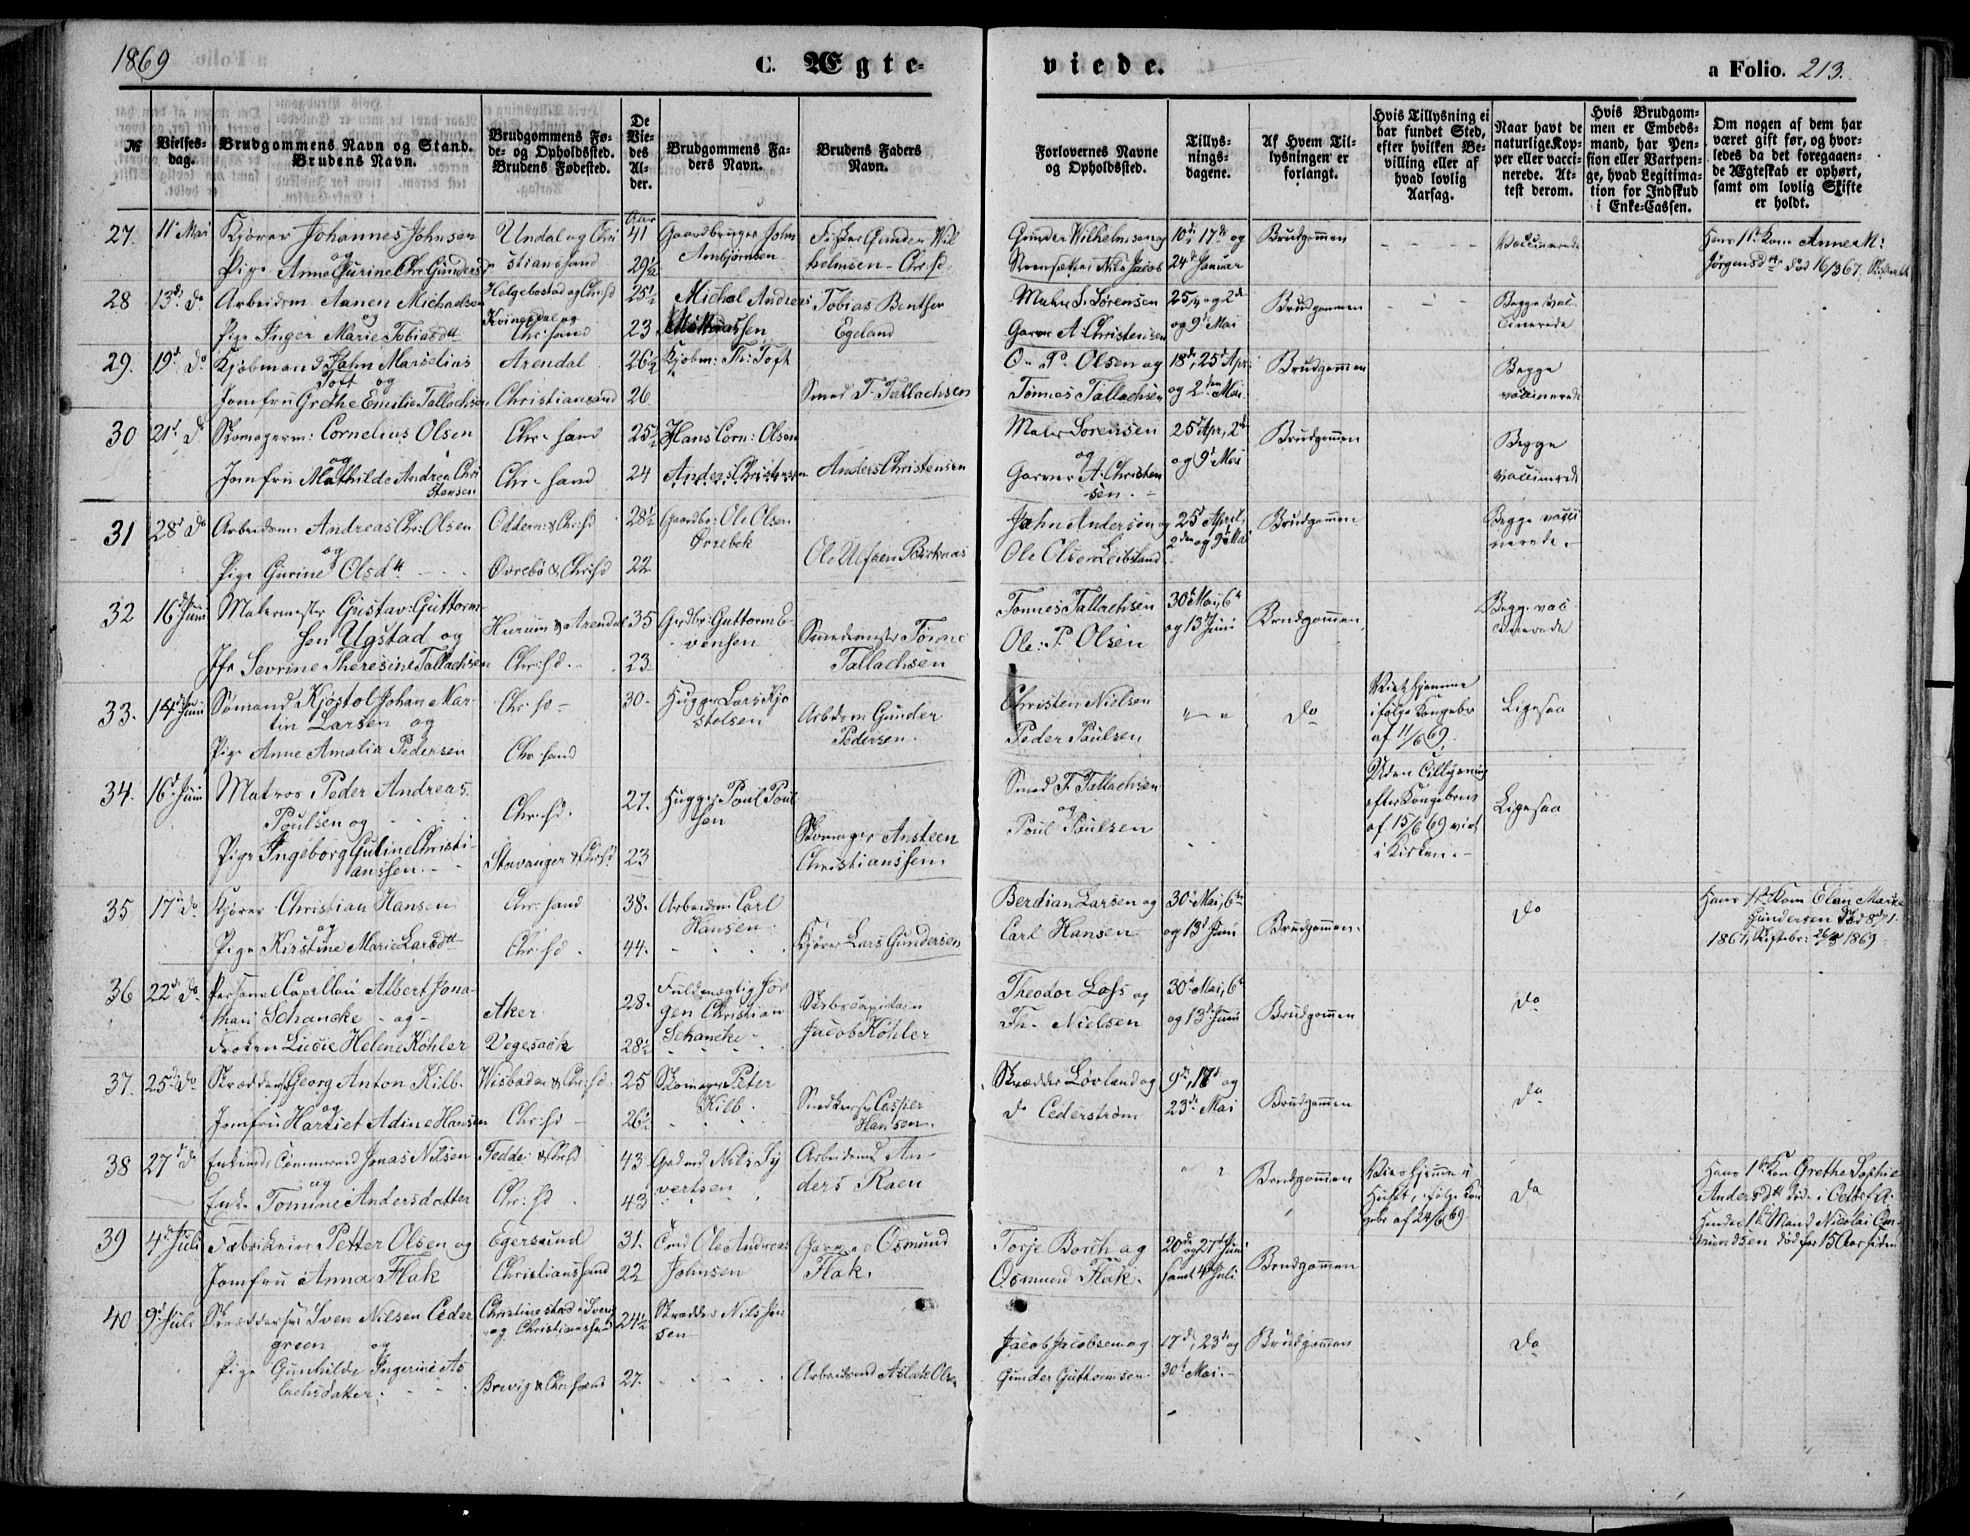 1869
C. Ægte-
viede.
a Folio. 213.
№
Vielses-
dag.
Brudgommens Navn og Stand.
Brudens Navn.
Brudgommens Fø-
de- og Opholdssted.
Brudens Fødested.
De
Vie-
des
Al-
der.
Brudgommens Fa-
ders Navn.
Brudens Faders
Navn.
Forlovernes Navne
og Opholdssted.
Tillys-
nings-
dagene.
Af Hvem Til-
lysningen er
forlangt.
Hvis Tillysning ei
har fundet Sted,
efter hvilken Be-
villing eller af
hvad lovlig
Aarsag.
Naar havt de
naturlige Kop-
per eller vacci-
nerede. At-
test derom.
Hvis Brudgom-
men er Embeds-
mand, har Pen-
sion eller Vartpen-
ge, hvad Legitima-
tion for Indskud
i Enke-Cassen.
Om nogen af dem har
været gift før, og hvor-
ledes da det foregaaen-
de Ægteskab er ophørt,
samt om lovlig Skifte
er holdt.
27. 11te Mai
Kjører Johannes Johnsen
og
Pige Anne Gurine Chr. Gundersd
Undal og Chri
stianssand
Aar
41
29½
Gaardbruger John
Ambjørnsen
Fisker Gunder Wil
helmsen - Chr.sd
Gunder Wilhelmsen og
Nils Jacob
10de 17de og
24de Januar
Brudgommen
Vaccinerede
Hans 1ste Kone Anne M.
Jørgensdtr død 16/3 67.
28 13de do
Arbeidsm Aanen Michaelsen
og
Pige Inger Marie Tobiasdtt
Helgebostad og Chrsd
Kvinesdal og
Chr.sand
25½
23
Michal Andreas
Tobias Benther
Egeland
Maler S. Sørensen
Garver A. Christensen
25/4 og 2de
og 9de Mai
Brudgommen
Begge vac-
cinerede
29. 19de do
Kjøbmand John Marselius
Toft og
Jomfru Grethe Emilie Tallachsen
Arendal
Christianssand
26½
26
Kjøbm: Th: Toft
Smed T. Tallachsen
O. P. Olsen og
Tønnes Tallachsen
18de, 25de Apr.
og 2den Mai
Brudgommen
Begge
vaccinerede
30 21de do
Skomagerm: Cornelius Olsen
og
Jomfru Mathilde Andrea Chri
stensen
Chr. sand
Chr. sand
25½
24
Hans Corn: Olsen
Anders Christensen
Anders Christensen
Maler Sørensen
og
Garver A. Christen
sen.
25de Apr, 2de
og 9de Mai
Brudgommen
Begge
vaccinerede
31 28de do
Arbeidsm Andreas Chr. Olsen
og
Pige Gurine Olsdtt
Oddern. & Chr.sd
Øvrebø & Chr.sd
28½
22
Gaardbr: Ole Olsen
Ørrebek
Ole Ulfsen Birknas
John Andersen og
Ole Olsen Leibstand
25de April,
2den og 9de Mai
Brudgommen
Begge vacci
nerede.
32 16de Juni
Malermester Gustav: Guttorm-
sen Ugstad og
Jfr Sevrine Theresine Tallachsen
Hurum & Arendal
Chr.sd.
35
23
Grdbr: Guttorm E-
vensen
Smedemester Tønne
Tallachsen
Tønnes Tallachsen
Ole: P. Olsen
30de Mai, 6te
og 13de Juni
Brudgommen
Begge vac-
cinerede
33. 14de Juni
Sømand Kjøstol Johan Mar-
tin Larsen og
Pige Anne Amalia Pedersen
Chr. sd
Chr. sand
30.
Hugger Lars Kjø
stolsen
Arbdsm Gunder
Pedersen.
Christen Nielsen
Peder Poulsen
" "
do
Viet hjemme
ifølge Kongebr
af 11/6 69
Ligesaa
34. 16de Juni
Matros Peder Andreas
Poulsen og
Pige Ingeborg Guline Christi-
anssen.
Chr.sd.
Stavanger & Chr.sd
27.
23
Hugger Poul Poul
sen
Skomager Ansteen
Christianssen.
Smed F. Tallachsen
og
Poul Poulsen
Uden Tillysning
efter Kongebrev
af 15/6 69 viet
i Kirken.
Ligesaa
35 17de do
Kjører Christian Hansen
og
Pige Kirstine Marie Larsdtt
Chr. sand
Chr. sd.
38.
44.
Arbeidsm Carl
Hansen
Kjører Lars Gundersen
Berdian Larsen og
Carl Hansen
30de Mai, 6te
og 13de Juni
Brudgommen.
do
Hans 1ste Kone Elen Marie
Gundersen død 8de
1867, Skiftebr: 26/5 1869
36 22de do
Personel Capellan Albert Jona-
than Schancke - og -
Frøken Lucie Helene Køhler
Aker
Vegesack
28.
28½
Fuldmægtig Jør
gen Christian
Schancke
Skibscapitain
Jacob Køhler
Theodor Loss og
Th. Nielsen
30de Mai, 6te
og 13de Juni
Brudgommen
do
37. 25de do
Skrædders. Georg Anton Kilb.
og
Jomfru Harriet Adine Hansen
Wisbaden & Chr.sd
Chr. sd
25
26½
Skomager Peter
Kilb.
Casper
Hansen.
Skrædder Løvland og
do Cederstrøm
9de, 17de og
23de Mai
Brudgommen
do
38 27de do
Enkemd. Jonas Nilsen
og
Enke Tomine Andersdatter
Fedde & Chr.sd
Chr. sd
43.
43
Grdmd Nils Sy
vertsen
Arbeidsmd An-
ders Raen
" "
Brudgommen
Viet hjemme i
Huset, ifølge Kon
gebr af 24/6 69
do
Hans 1ste Kone Grethe Sophie
Andersdtt døde i
Hendes 1ste Mand Nicolai Om-
mundsen død for 15 Aar siden
39 4de Juli
Fabrikeier Petter Olsen og
Jomfru Anna Flak
Egersund
Christianssand
31.
22
Ole Andreas
Johnsen
Garver Osmund
Flak.
Torje Borch og
Osmund Flak.
20de og 27de Juni
samt 4de Juli
Brudgommen
40 9de Juli
Skræddersv Sven Nilsen Ceder
green og
Pige Gunhilde Ingerine As
lachsdatter.
Christinestad i Sver
og Christianssand
Brevig & Chr.sand
24½
27.
Skrædder Nils Jen
sen
Arbeidsmd Aslak Olsen
Jacob Jacobsen og
Gunder Guttormsen
17de, 23de og
30de Mai.
Brudgommen
do